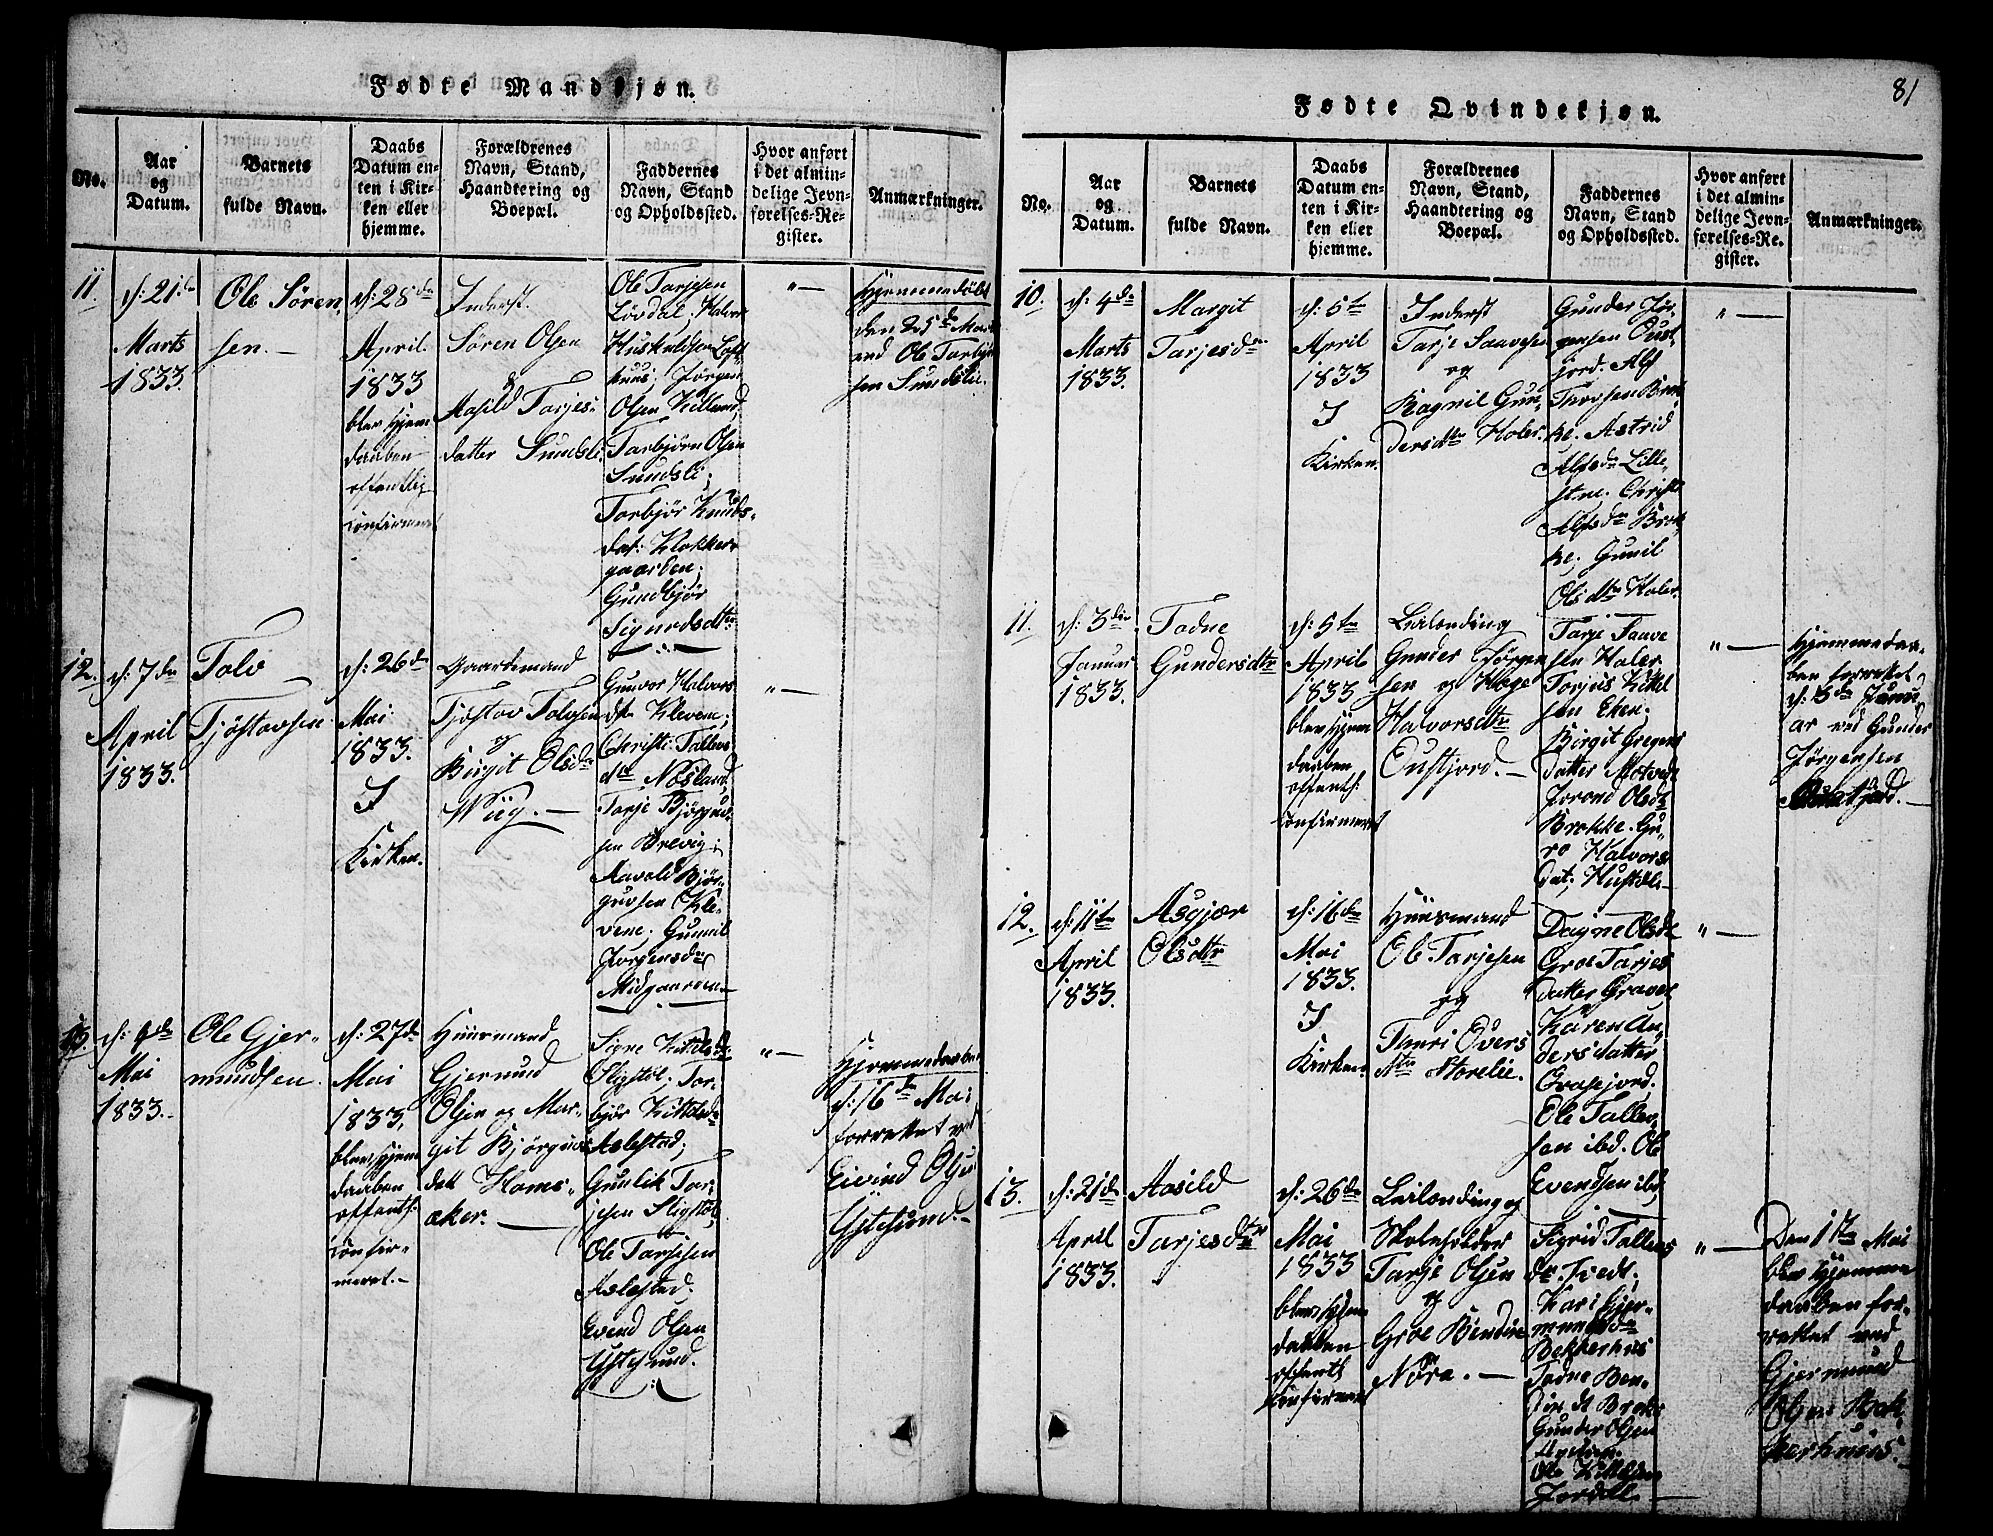 Fødte Mandkjøn.
No.
Aar
og
Datum.
Barnets
fulde Navn.
Daabs
Datum en-
ten i Kir-
ken eller
hjemme.
Forældrenes
Navn, Stand,
Haandtering og
Boepæl.
Faddernes
Navn, Stand
og Opholdssted.
Hvor anført
i det almin-
delige Jevn-
førelses-Re-
gister.
Anmærkninger.
11.
d: 21de
Marts
1833.
Ole Sören
sen.
d: 28de
April
1833
blev hjem
daaben
offentlig
confirmeret
Inderst
Sören Olsen
&
Aasild Tarjes-
datter Sundsli.
Ole Tarjesen
Lövdal. Halvor
Huskuldsen Loft-
huus; Jörgen
Olsen Killand,
Torbjörn Olsen
Sundsli;
Torbjör Knuds-
dat: Klokker-
gaarden;
Gundbjör
Sigurdsdtr
"—
Hjemmedöbt
den 25de Marts
ved Ole Torbjörn
sen Sundslie.
12.
d: 7de
April
1833.
Tolv
Tjöstovsen
d: 26de
Mai
1833.
I
Kirken.
Gaardmand
Tjöstov Tolvsen
og
Birgit Olsdr
Wiig.—
Gunvor Halvors
dtr Klevene;
Christi Tallevs
dtr Næsland,
Tarje Björguf-
sen Brevig;
Aavold Björ-
gufsen Kle-
vene. Gunnil
Jörgensdr
Midgaarden
"—
13.
d: 4de
Mai
1833.
Ole Gjer-
mundsen.
d: 27de
Mai
1833,
blev hjem
daaben
offentl:
confir-
meret.—
Huusmand
Gjermund
Olsen og Mar-
git Björgufs
dat. Homs-
aker.—
Signe Kittelsdr
Sligstöl; Tor-
björ Kittelsdr
Aslestad;
Gunlik Tar-
jesen Sligstöl,
Ole Tarjesen
Aslestad.
Evend Olsen
Ytesund.
"—
Hjemmedaaben
d: 16de Mai
forrettet ved
Eivind Olsen
Ytesund.—
81
Fødte Qvindekjøn.
No.
Aar
og
Datum.
Barnets
fulde Navn.
Daabs
Datum en-
ten i Kir-
ken eller
hjemme.
Forældrenes
Navn, Stand,
Haandtering og
Boepæl.
Faddernes
Navn, Stand
og Opholdssted.
Hvor anført
i det almin-
delige Jevn-
førelses-Re-
gister.
Anmærkninger.
10.
d: 4de
Marts
1833.
Margit
Tarjesdr
d: 5te
April
1833
I
Kirken.
Inderst
Tarje Saavesen
og
Ragnil Gun-
dersdtr Holer.
Gunder Jör-
gensen Oust-
jord. Alf
Thorsen Brok-
ke. Astrid
Alfsdr Lille-
stue. Christi
Alfsdr Brok-
ke; Gunil
Olsdtr Holer.
"—
11.
d: 3die
Januar
1833.
Todne
Gundersdtr
d: 5te
April
1833
blev hjem
daaben
offentl:
confirmeret
Leilending
Gunder Jörgen
sen og Hæge
Halvorsdtr
Oustjord.—
Tarje Saave
sen Holer
Torjus Kittel
sen Eken.
Birgit Gregers
datter Motvedt
Jorond Olsdtr
Brokke. Gu-
ro Halvors
dat. Hustøle
"—
Hjemmedaa-
ben forrettet
d: 3de Janu-
ar ved Gunder
Jörgensen
Oustjord.—
12.
d: 11te
April
1833.
Asgjær
Olsdtr
d: 16de
Mai
1833.
I
Kirken.
Huusmand
Ole Tarjesen
og
Thuri Overs
dtr Storelie.
Dagne Olsdr
Groe Tarjes
datter Graver
Karen An-
dersdatter
Grasejord.
Ole Tallev-
sen ibd. Ole
Evendsen ibd,
"—
13.
d: 21de
April
1833.
Aasild
Tarjesdtr
d: 26de
Mai
1833
blev hjem
daaben
offentl
confirmeret
Leilending og
Skoleholder
Tarje Olsen
og
Groe Bendixdr
Nöra.—
Sigrid Tallevs
dr Tvedt;
Kari Gjer-
mundsdr
Bekkerhus
Todne Ben-
dixdt Brokke
Gunder Olsen
Ole Kittelsen
"—
Den 1ste Mai
blev hjemme
daaben for-
rettet ved
Gjermund
Olsen Bek-
kerhuus.—